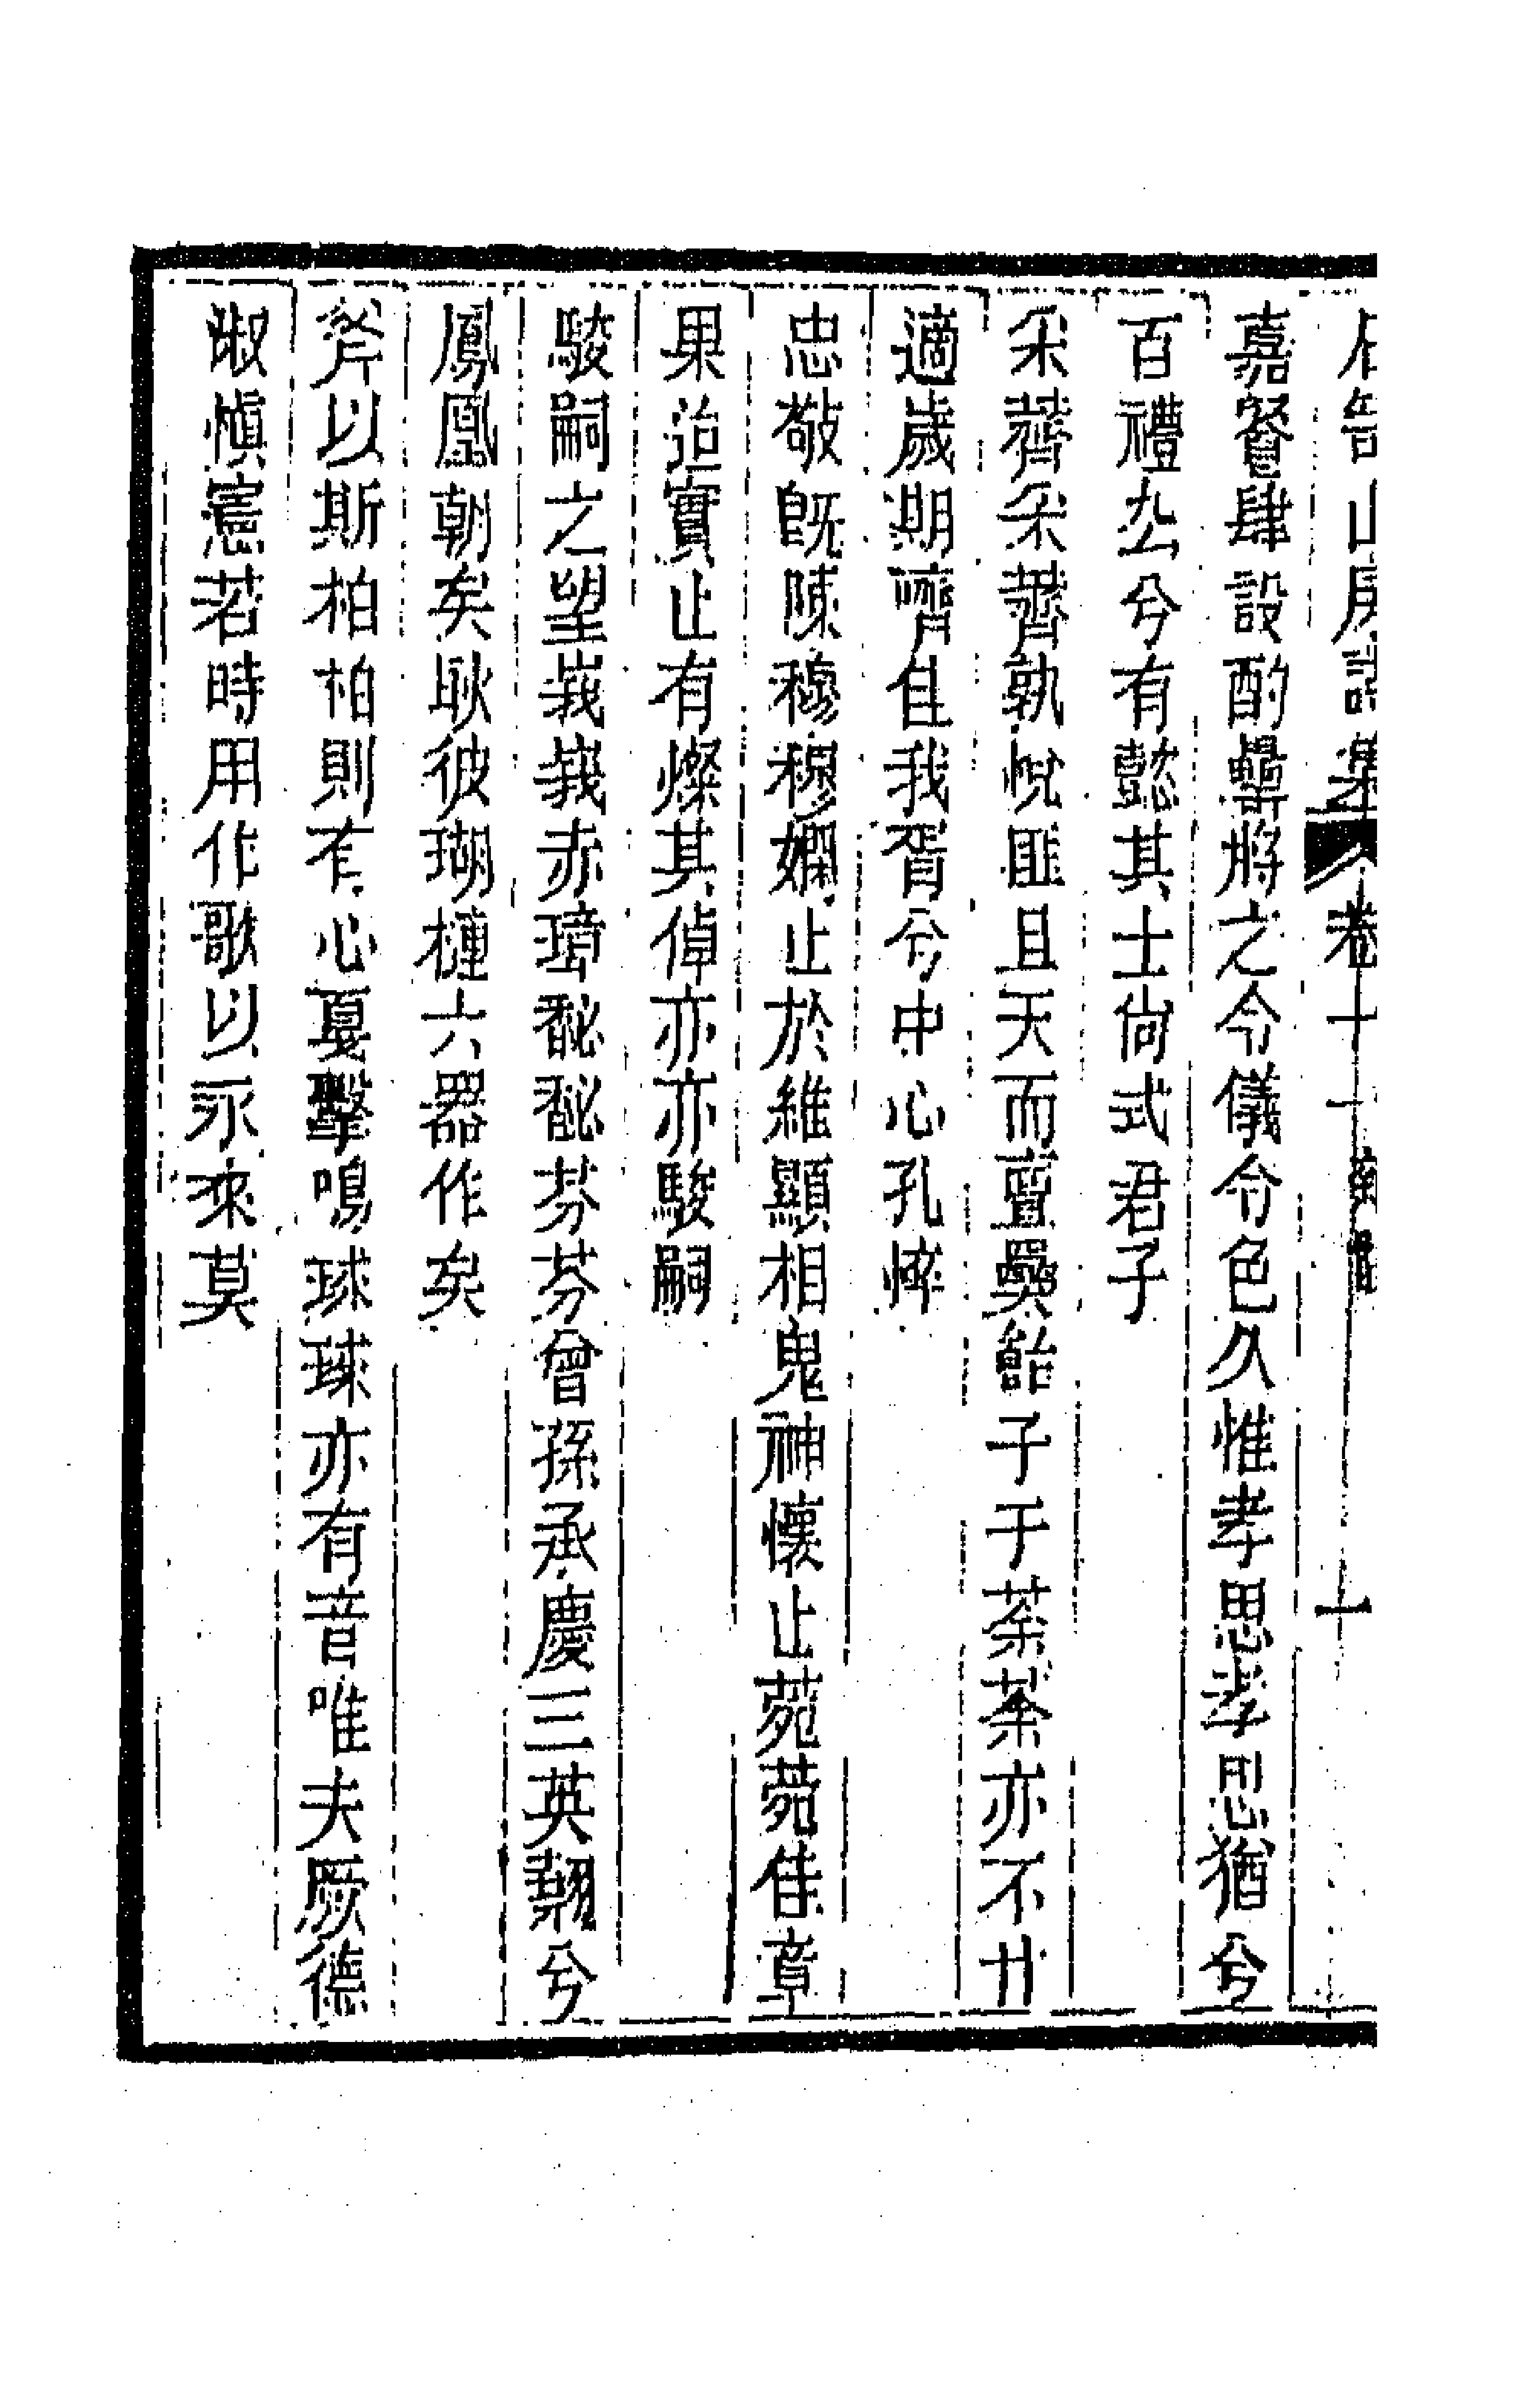 卷十一 十
嘉餐肆設酌罍將之令儀令色久惟孝思孝思猶兮
百禮厺兮有懿其士尚式君子
采薺采薺孰悅匪且天而亶異飴子于荼荼亦不廿
適歲期隮隹我胥兮中心孔悴
忠敬旣陳穆穆嫻止於維顯相鬼神懷止菀菀隹章
果迨實止有燦其倬亦亦駿嗣
駿嗣之望峩峩赤璋馝馝芬芬曾孫承慶三英翹兮
鳳凰朝矣耿彼瑚槤六器作矣
斧以斯柏柏則有心戛擊鳴球球亦有音唯夫厥德
淑愼憲若時用作歌以永來莫